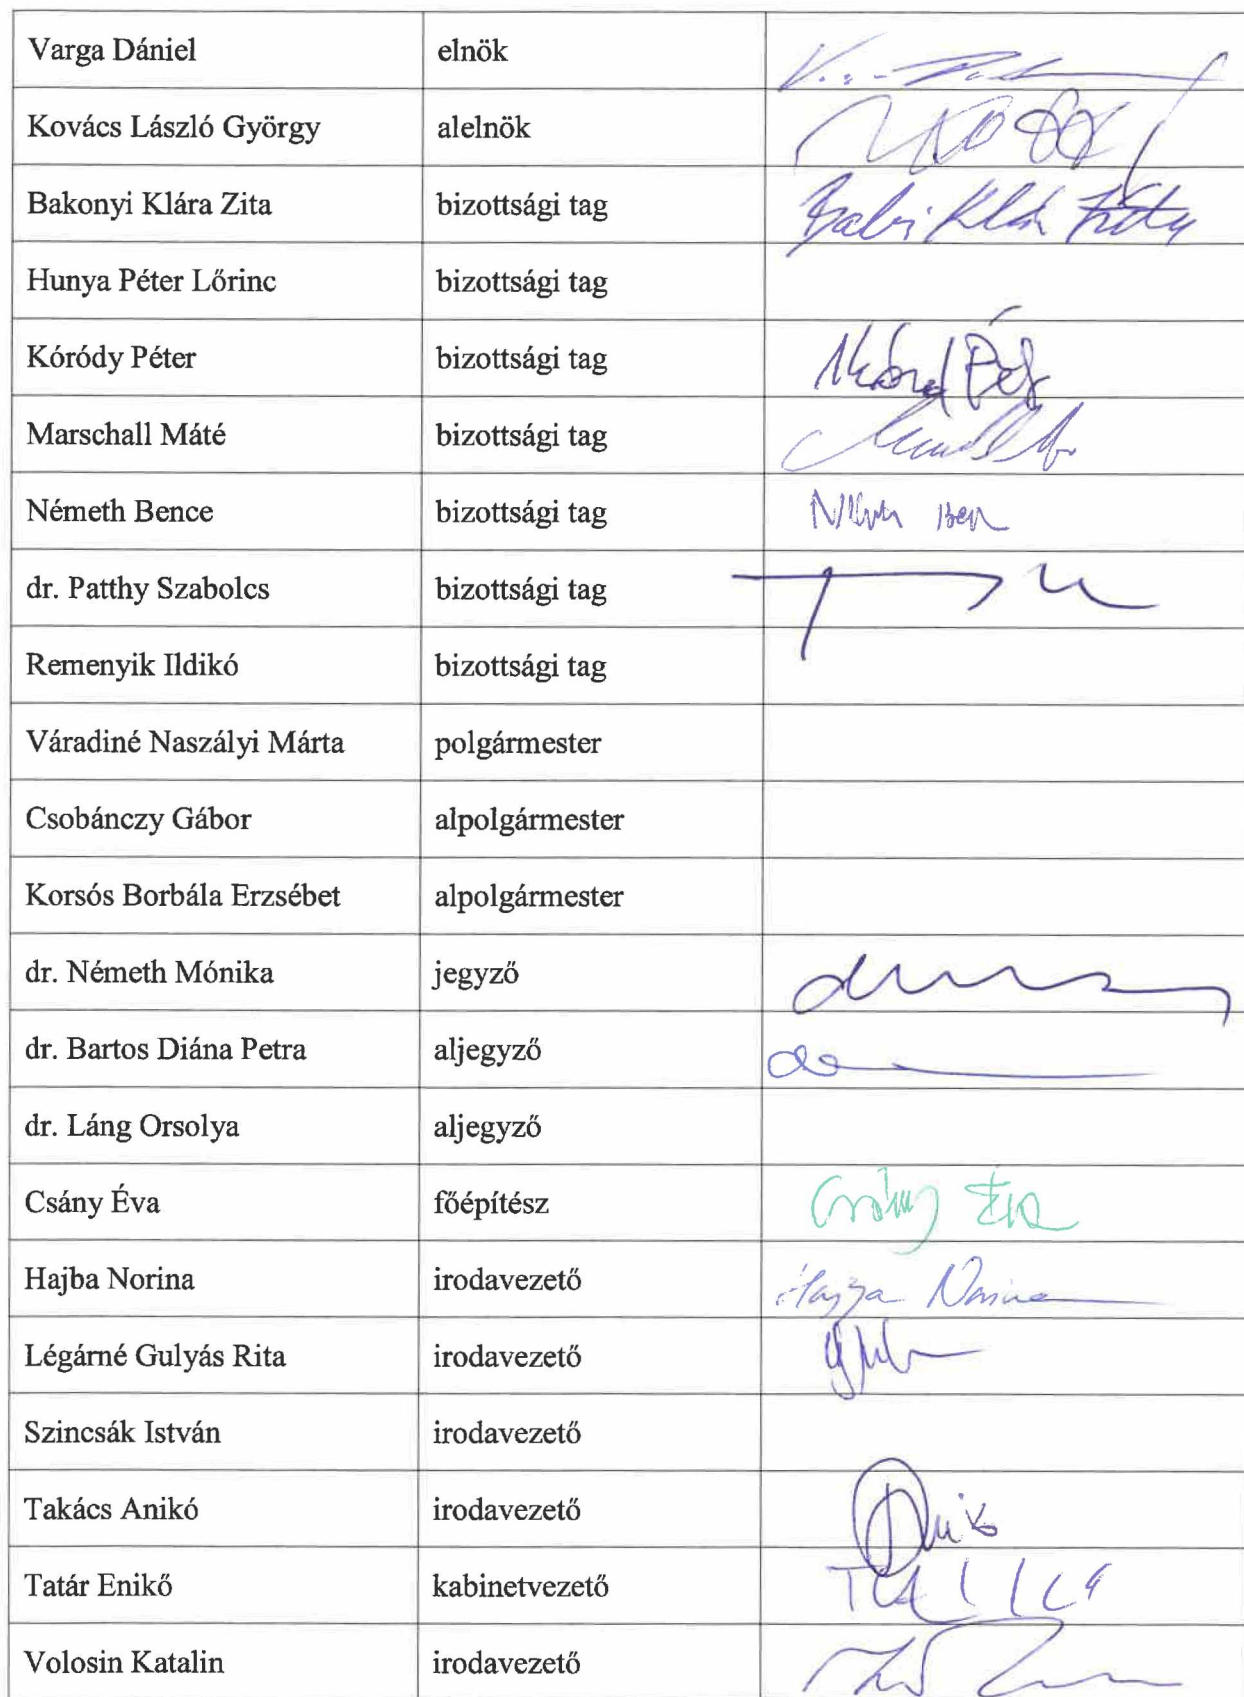 Varga Dániel elnök
Kovács László György alelnök
Bakonyi Klára Zita bizottsági tag
Hunya Péter Lőrinc bizottsági tag
Kóródy Péter bizottsági tag
Marschall Máté bizottsági tag
Németh Bence bizottsági tag
dr. Patthy Szabolcs bizottsági tag
Remenyik Ildikó bizottsági tag
Váradiné Naszályi Márta polgármester
Csobánczy Gábor alpolgármester
Korsós Borbála Erzsébet alpolgármester
dr. Németh Mónika jegyző
dr. Bartos Diána Petra aljegyző
dr. Láng Orsolya aljegyző
Csány Éva főépítész
Hajba Norina irodavezető
Légárné Gulyás Rita irodavezető
Szincsák István irodavezető
Takács Anikó irodavezető
Tatár Enikő kabinetvezető
Volosin Katalin irodavezető